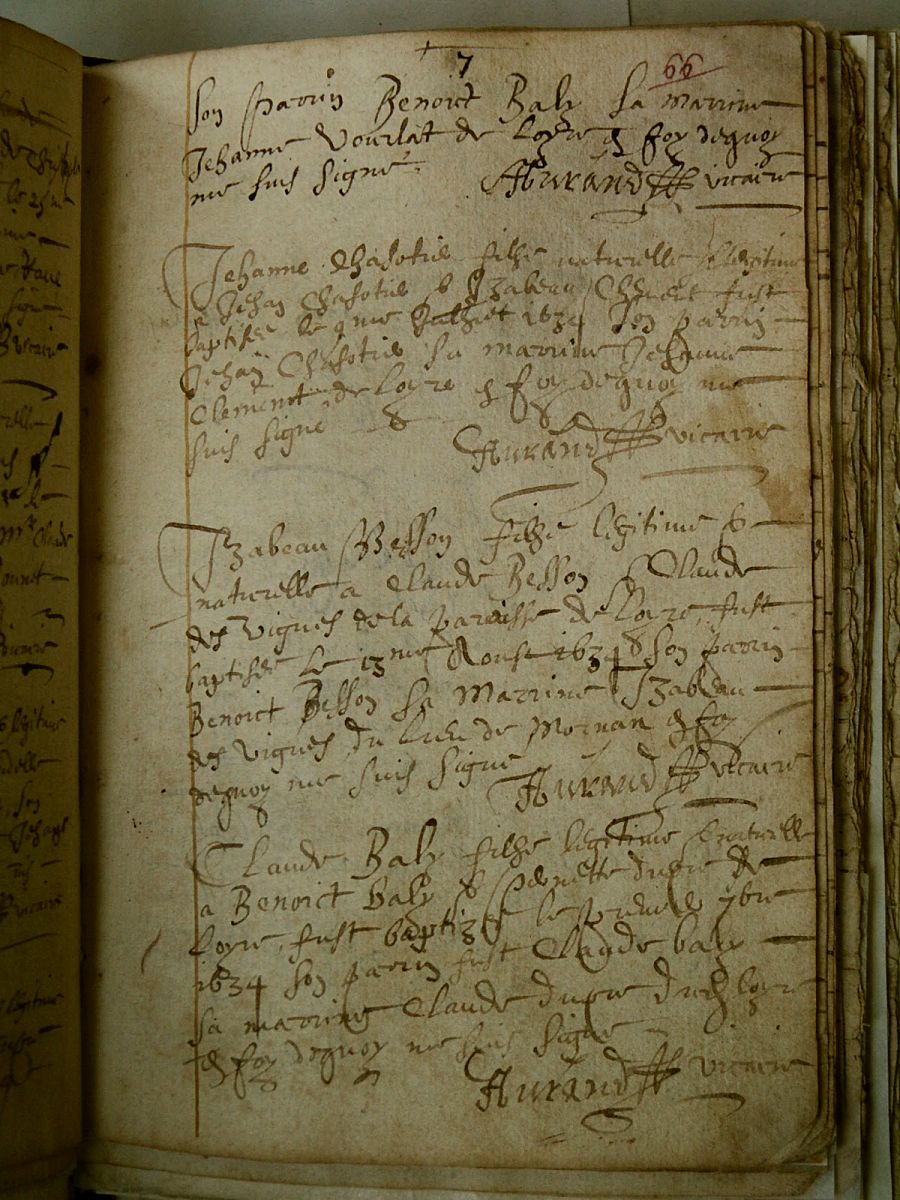 7
66
son parrin Benoict Baly sa marrine
Jehanne Vourlat de Loyre & foy dequoy
me suis signe Aurand vicaire
Jehanne Chasotie filhe naturelle & legitime
a Jehan Chasotie & Izabeau Clement fust
baptisee le 9me Julhiet 1634 son parrin
Jehan Chasotie sa marrine Jehanne
Clement de Loyre & foy dequoy me
suis signe
Aurand vicaire
Izabeau Besson filhe legitime &
naturelle a Claude Besson & Claude
des Vignes de la paroisse de Loyre, fust
baptisee le 13me Aoust 1634 & son parrin
Benoict Besson sa Marrine Izabeau
des vignes du lieu de Mornan & foy
dequoy me suis signe
Aurand vicaire
Claude Baly filhe legitime & naturelle
a Benoict baly & Pernette dupre de
Loyre, fust baptizee le premie ybre
1634 son parrin fust Claude baly
sa marrine Claude dupre dud loyre
& foy dequoy me suis signe
Aurand vicaire